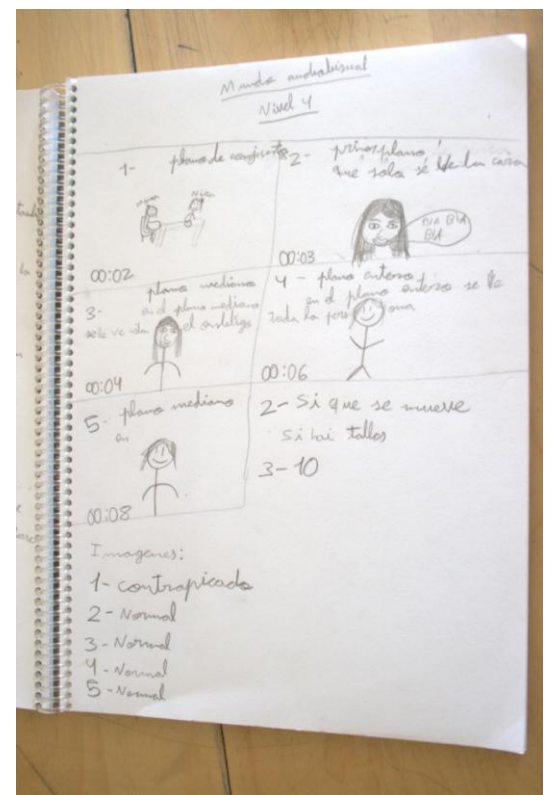 Mundo audiobisual
Nivel 4
1- plano de conjunto
00:02
2- primer plano
que sólo sé Ve la cara
BLA BLA
BLA
00:03
3- plano mediano
en el plano mediano
solo ve asta el onbligo
00:04
4 - plano entero
en el plano entero se Ve
toda la persona
00:06
5- plano mediano
en
00:08
2- Si que se mueve
Si hai tallos
3- 10
Imagenes:
1- contrapicado
2- Normal
3- Normal
4- Normal
5- Normal